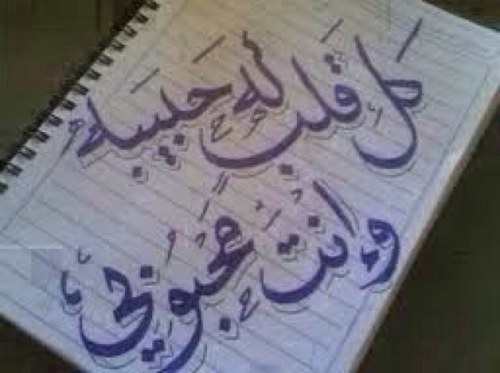 كل قلب له حبيبه
وانت محبوبي